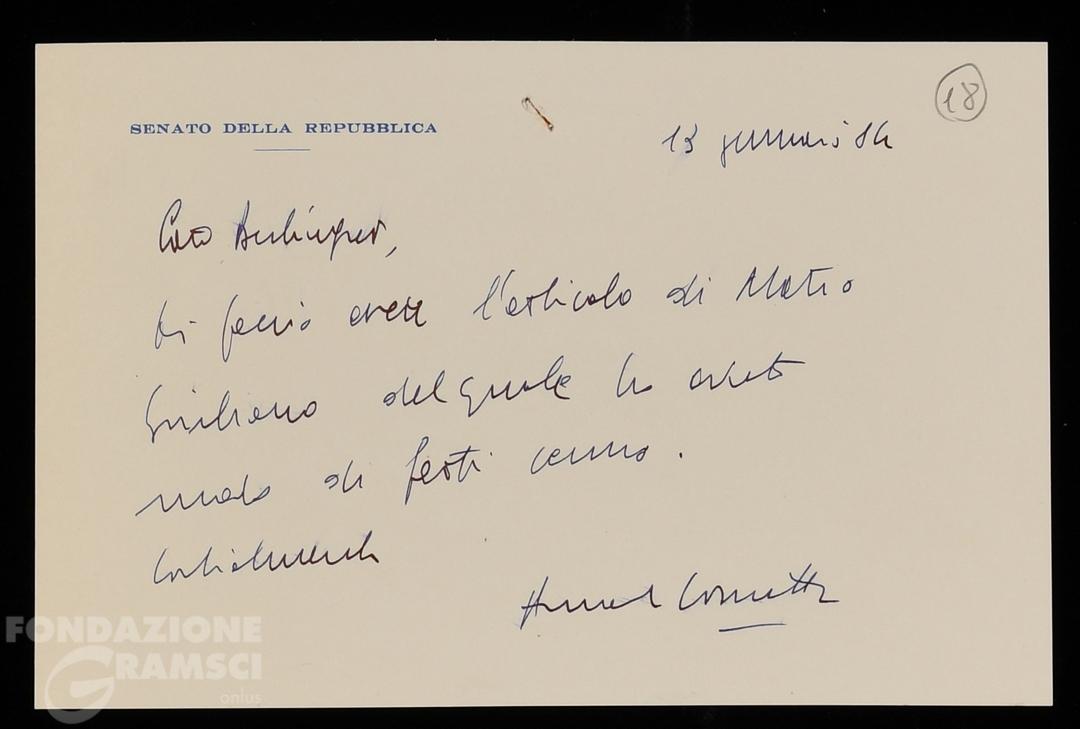 18
SENATO DELLA REPUBBLICA
13 gennaio 84
Caro Berlinguer,
ti faccio avere l'articolo di Mario
Giuliano del quale ho avuto
modo di farti cenno.
Cordialmente
Cossutta
FONDAZIONE
GRAMSCI
onlus